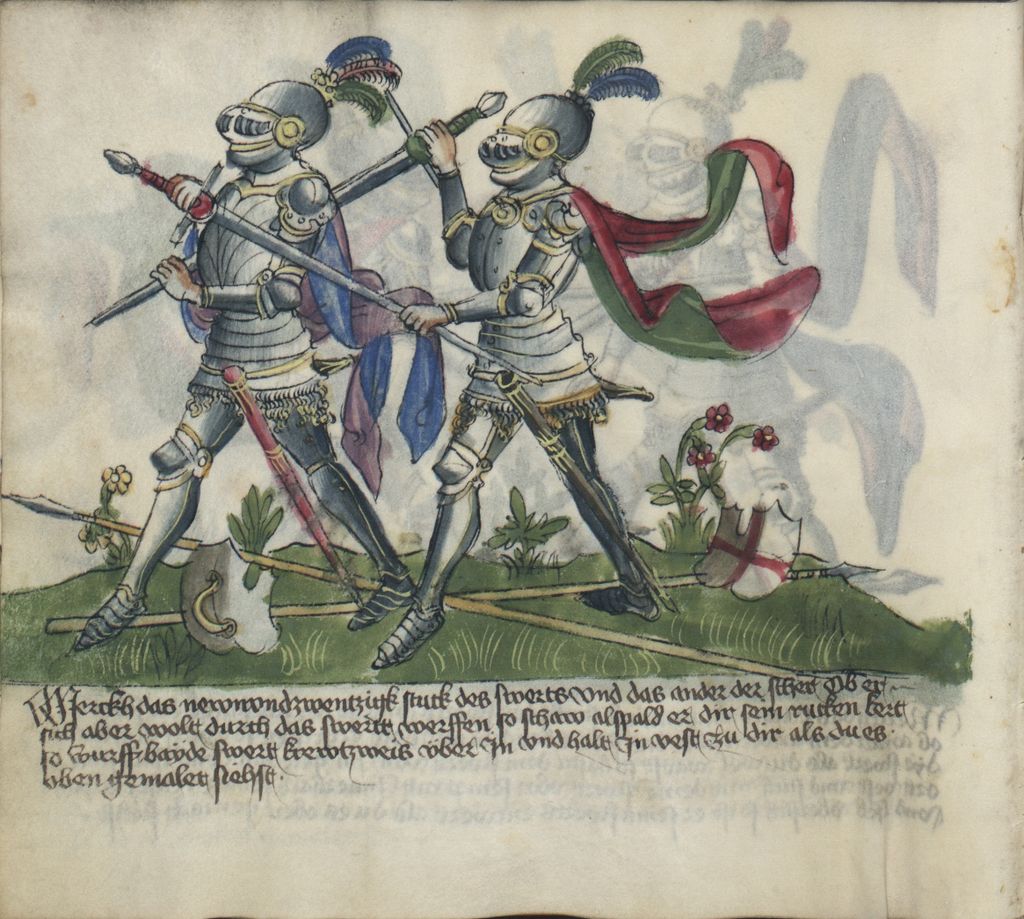 Merckh das newnundzwentzigk stuck des swerts vnd das ander der scher Ob er
sich aber wolt durch das swertt werffen so schaw alspald er dir sein rucken kert
so wurff bayde swert krewtzweis vber In vnd halt In vest zu dir als du es
oben gemalet siehst.